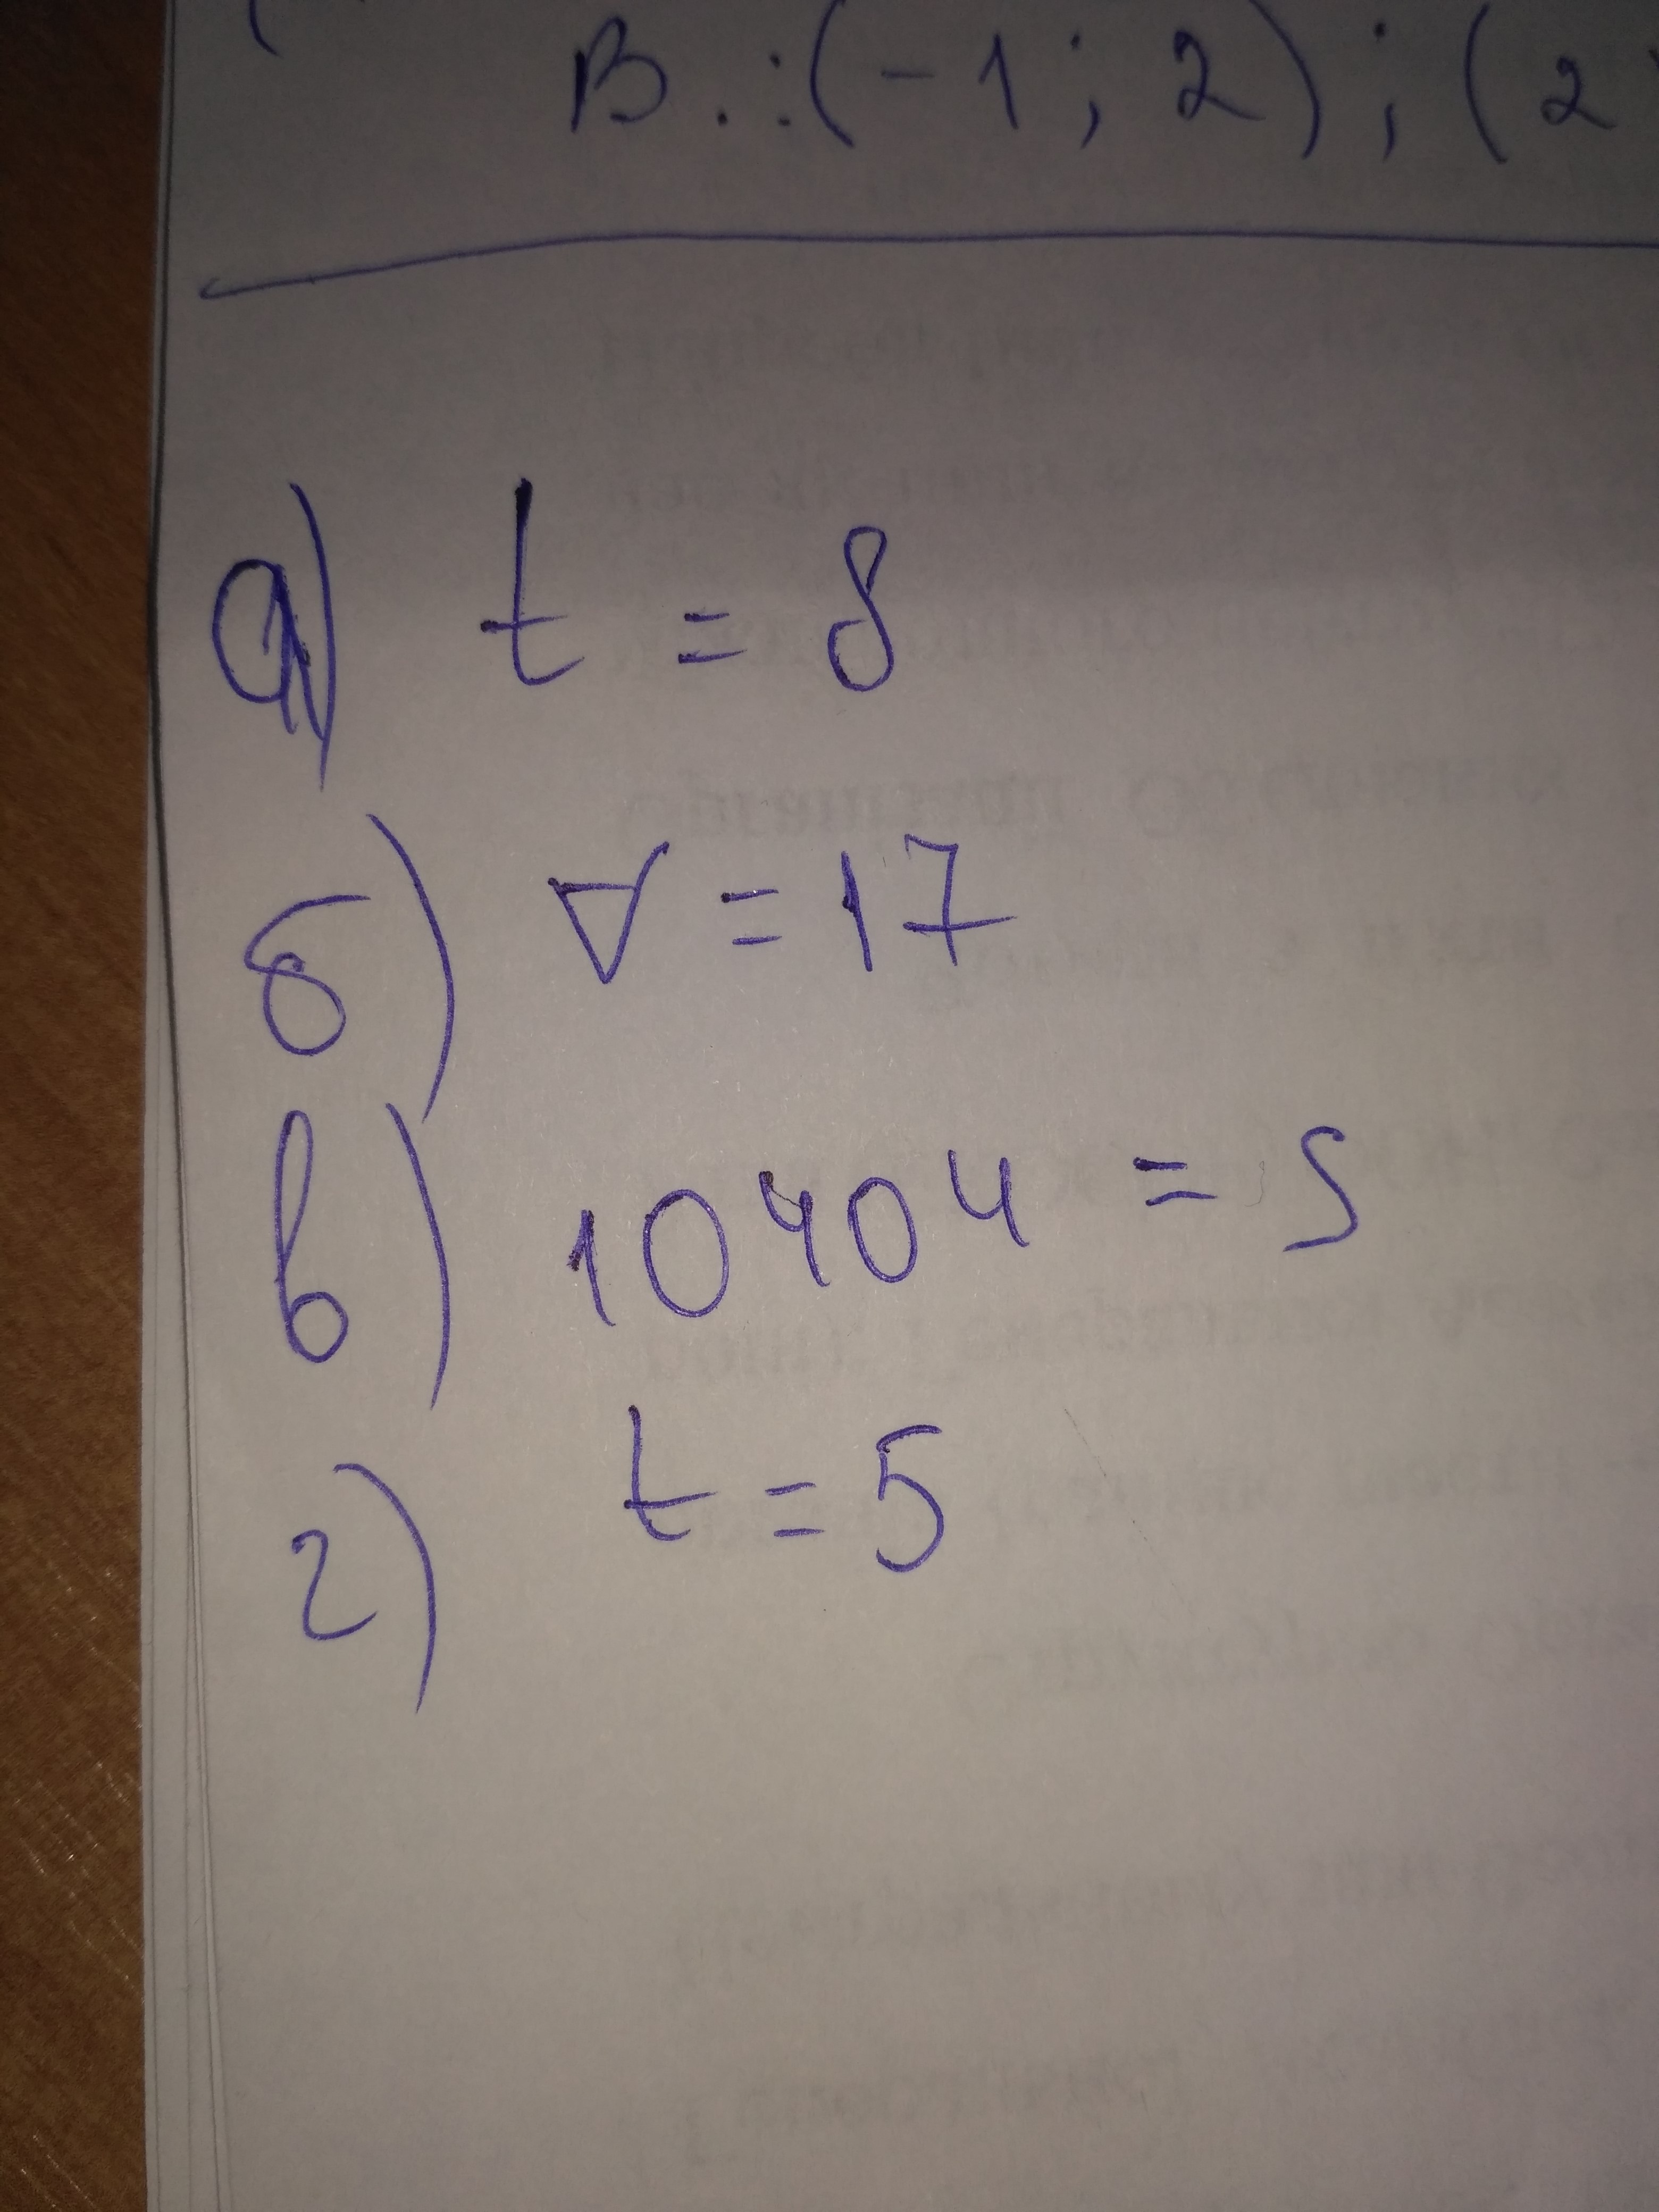 В.:(-1; 2); (2
а) t = 8
б) V = 17
в) 10404 = S
г) t = 5